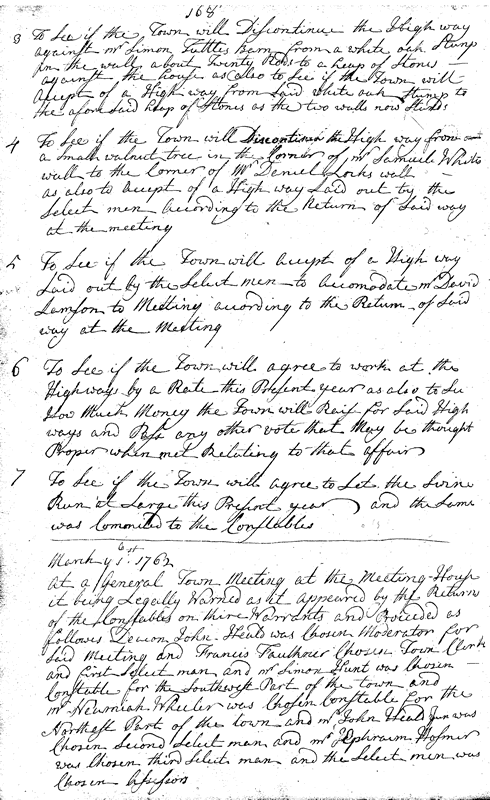 168
3 To See if the Town will Discontinue the High way
against mr Simon Tuttles Barn from a white oak Stump
in the wall about Twenty Rods to a heap of Stones —
against the house as also to See if the Town will
Accept of a High way from Said white oak Stump to
the afore Said heap of Stones as the two walls now Stands
4 To See if the Town will Discontinue the High way from
a Small walnut tree in the Corner of mr Samuel Whits
wall to the Corner of Mr Deniel Locks wall —
as also to Accept of a High way Laid out by the
Select men According to the Return of Said way
at the meeting
5 To See if the Town will Accept of a High way
Laid out by the Select men — to Accomodate mr David
Lamson to Meeting according to the Return of Said
way at the Meeting
6 To See if the Town will agree to work at the
Highways by a Rate this Present year as also to See
How Much Money the Town will Rais for Said High
ways and Pass any other vote that May be thought
Proper when met Relating to that affair
7 To See if the Town will agree to Let the Swine
Run at Large this Present year and the Same
was Commited to the Constables
March ye 1st 1762
At a General Town Meeting at the Meeting House
it being Legally Warned as it appeared by the Return
of the Constables on thire Warrants and Proceded as
follows Deacon John Heald was Chosen Moderator for
Said Meeting and Francis Faulkner Chosen Town Clerk
and first Select man and mr Simon Hunt was Chosen —
Constable for the Southwest Part of the town and
mr Nehemiah Wheeler was Chosen Constable for the
Northest Part of the town and mr John Heald Jun was
Chosen Second Select man and mr Ephraim Hosmer
was Chosen third Select man and the Select men was
Chosen Assessors